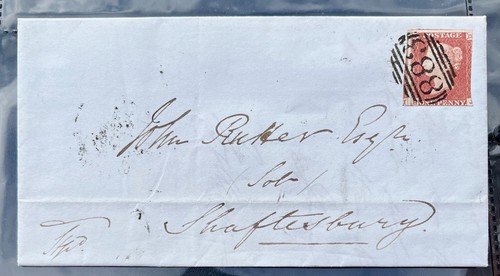 POSTAGE
883
PENNY
John Rutter Esqr.
Solr
Shaftesbury.